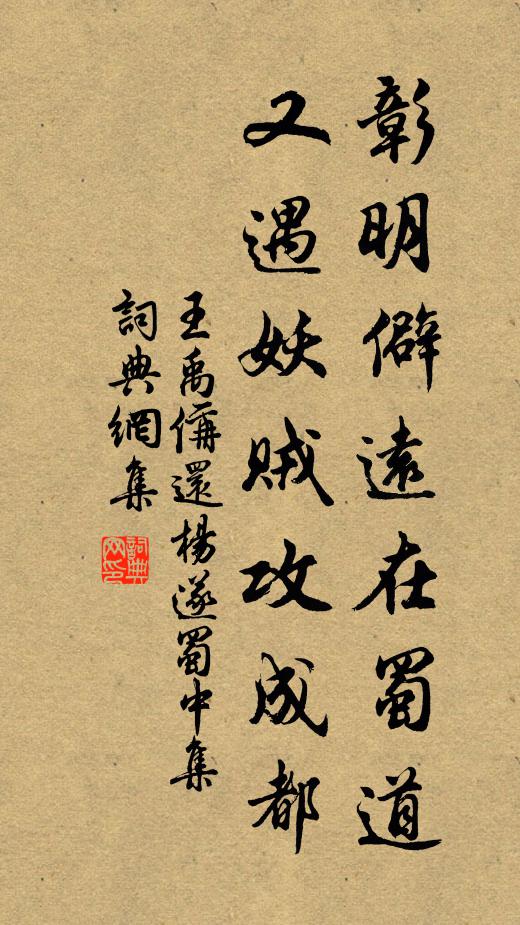 彰明僻遠在蜀道
又遇妖賊攻成都
王禹偁還楊遂蜀中集
詞典網集
詞典网印